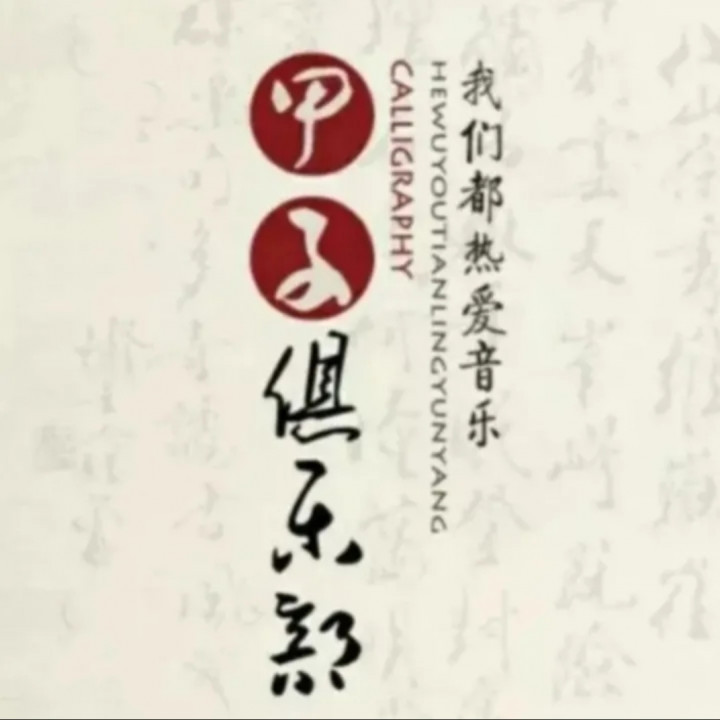 我们都热爱音乐
HEWUYOUTIANLINGYUNYANG
CALLIGRAPHY
甲子俱乐部